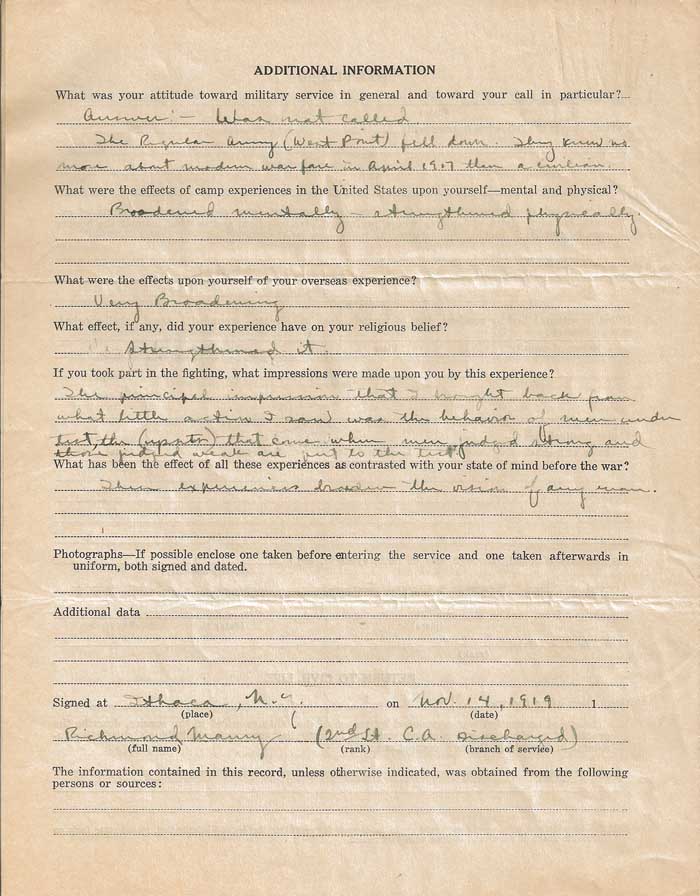 ADDITIONAL INFORMATION
What was your attitude toward military service in general and toward your call in particular?
Answer:- Was not called
The Regular Army (West Point) fell down. They knew no
more about modern warfare in April 1917 than a civilian.
What were the effects of camp experiences in the United States upon yourself—mental and physical?
Broadened mentally - strengthened physically.
What were the effects upon yourself of your overseas experience?
Very Broadening
What effect, if any, did your experience have on your religious belief?
Strengthened it.
If you took part in the fighting, what impressions were made upon you by this experience?
The principal impression that I brought back from
what little action I saw was the behavior of men under
test, the (upsets) that come when men judged strong and
those judged weak are put to the test.
What has been the effect of all these experiences as contrasted with your state of mind before the war?
These experiences broaden the vision of any man.
Photographs—If possible enclose one taken before entering the service and one taken afterwards in
uniform, both signed and dated.
Additional data
Signed at Ithaca, N.Y. on Nov. 14, 1919 1
(place) (date)
Richmond Maury (2nd Lt. C.A. Discharged)
(full name) (rank) (branch of service)
The information contained in this record, unless otherwise indicated, was obtained from the following
persons or sources: